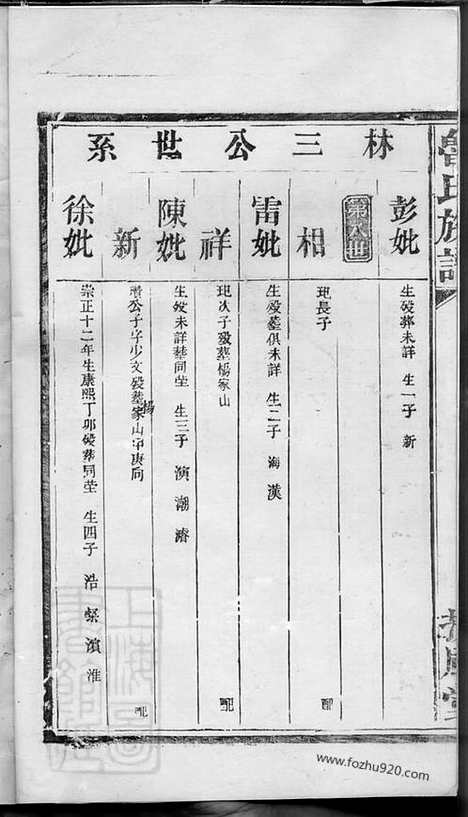 林三公世系
彭妣 生殁葬未詳 生一子 新
第八世
相 玘長子 配
雷妣 生殁墓俱未詳 生二子 海漢
祥 玘次子殁葬楊家山 配
陳妣 生殁未詳葬同塋 生三子 演潮濬
新 公子字少文殁墓楊家山甲庚向 配
徐妣 崇正十二年生康熙丁卯殁葬同塋 生四子 浩 濱淮
氏族譜
上海圖書館
www.fozhu920.com